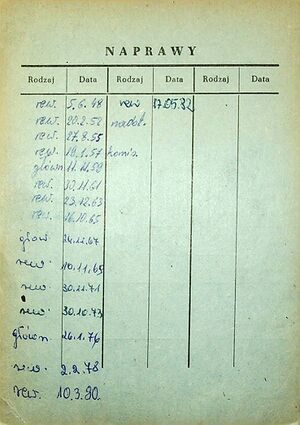 NAPRAWY
Rodzaj Data Rodzaj Data Rodzaj Data
rew. 5.6.48 rew 17.05.82
rew. 20.2.52
rew. 27.8.55
rew. 19.1.57
główn 11.11.59
rew. 30.11.61
rew. 23.12.63
rew. 16.10.65
głow. 14.12.67
rew 10.11.69
rew. 30.11.71
rew. 30.10.73
główn. 26.1.76
rew. 2.2.78
rew. 10.3.80.